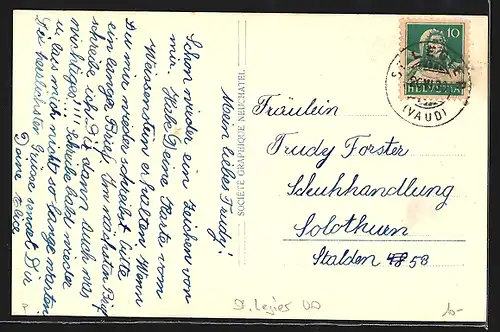 Mein liebes Trudy!
Schon wieder ein Zeichen von
mir. Habe Deine Karte vom
Weissenstein erhalten. Wenn
Du mir wieder schreibst bitte
ein langer Brief. Im nächsten Brief
schreibe ich Dir dann auch was
wichtiges!!!! Schreibe bald wieder
u. lass mich nicht so lange warten
Die herzlichsten Grüsse sendet Dir
Deine
Alice
SOCIÉTÉ GRAPHIQUE NEUCHATEL
10
HELVETIA
(VAUD)
Fräulein
Trudy Forster
Schuhhandlung
Solothurn
Stalden 58
St. Legier VD
10.-